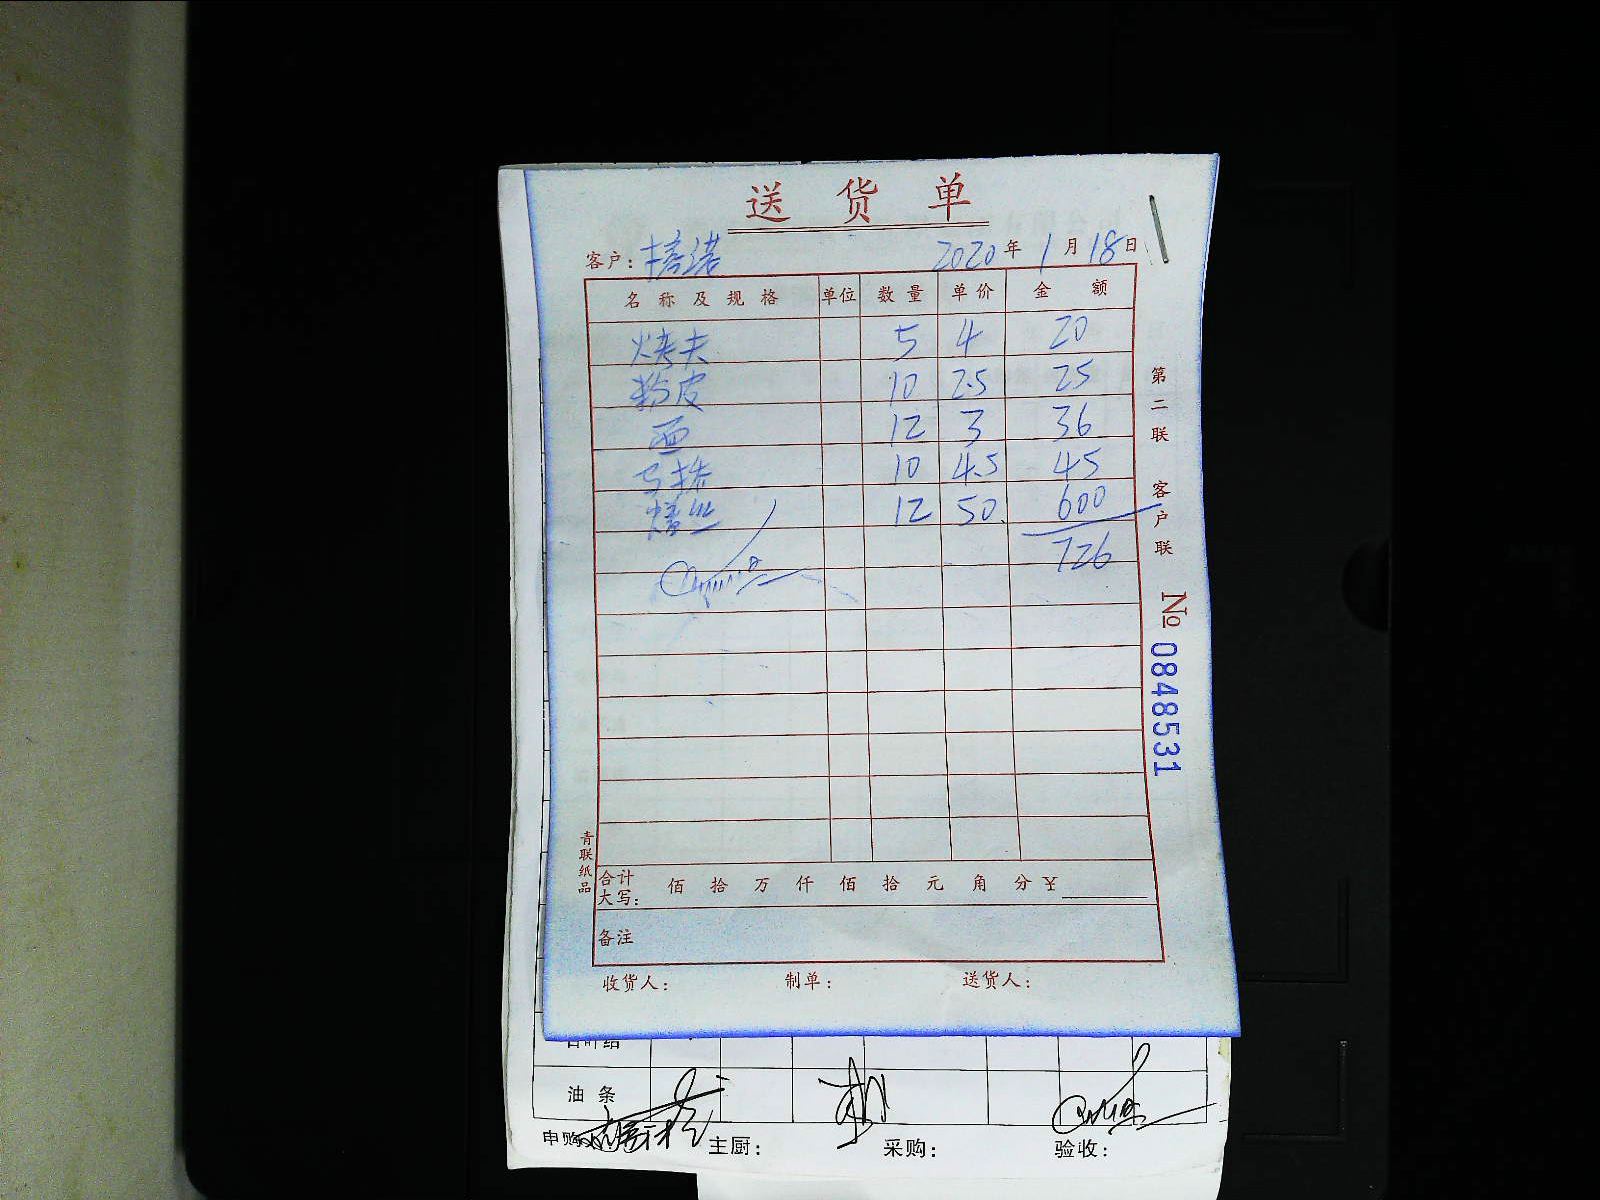 送 货 单
客户: 2020年1月18日
名称及规格 单位 数量 单价 金额
烤夫 5 4 20
粉皮 10 2.5 25
面 12 3 36
10 4.5 45
12 50 600
726
第二联 客户联
№ 0848531
青联纸品
合计大写: 佰 拾 万 仟 佰 拾 元 角 分 ¥
备注
收货人: 制单: 送货人:
油条
申购 主厨: 采购: 验收: